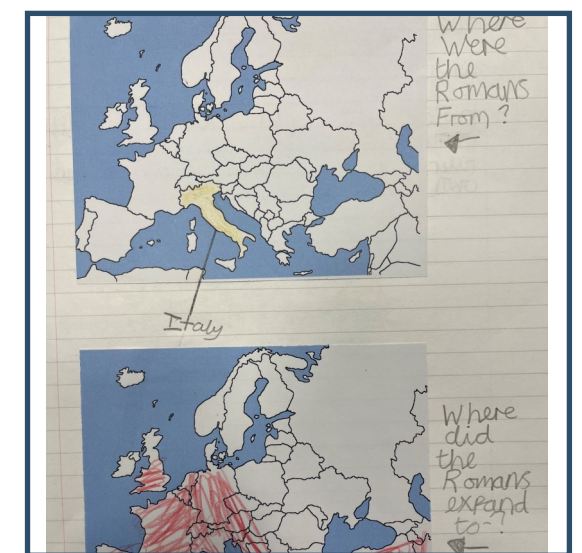 Where
Were
the
Romans
From?
Italy
Where
did
the
Romans
expand
to-?